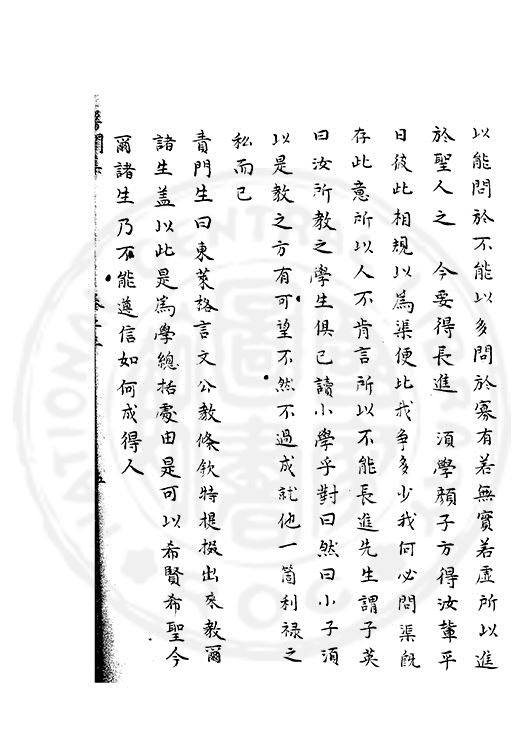 以能問於不能以多問於寡有若無實若虛所以進
於聖人之　今要得長進　須學顏子方得汝輩平
日彼此相規以為渠便比我爭多少我何必問渠旣
存此意所以人不肯言所以不能長進先生謂子英
曰汝所教之學生俱已讀小學乎對曰然曰小子須
以是教之方有可望不然不過成就他一箇利祿之
私而已
責門生曰東萊格言文公教條欽特提掇出來教爾
諸生盖以此是為學總括處由是可以希賢希聖今
爾諸生乃不能遵信如何成得人